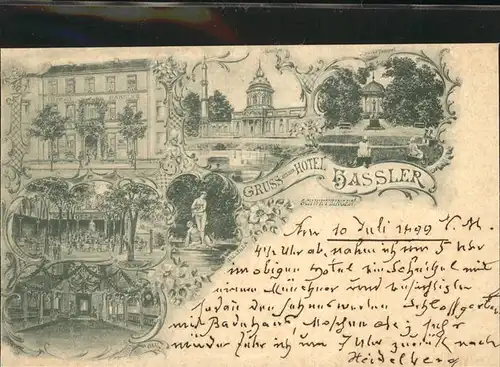 GRUSS aus dem HOTEL HASSLER
SCHWETZINGEN
Am 10 Juli 1899 N. M.
4½ Uhr ab, nahm ich um 5 Uhr
im obigen Hotel ein mit
einem Münchner und besichtigte
sodann den sehenswerten Schlossgarten
mit Badhaus, Moschee etc
wieder fuhr ich um 7 Uhr zurück nach
Heidelberg